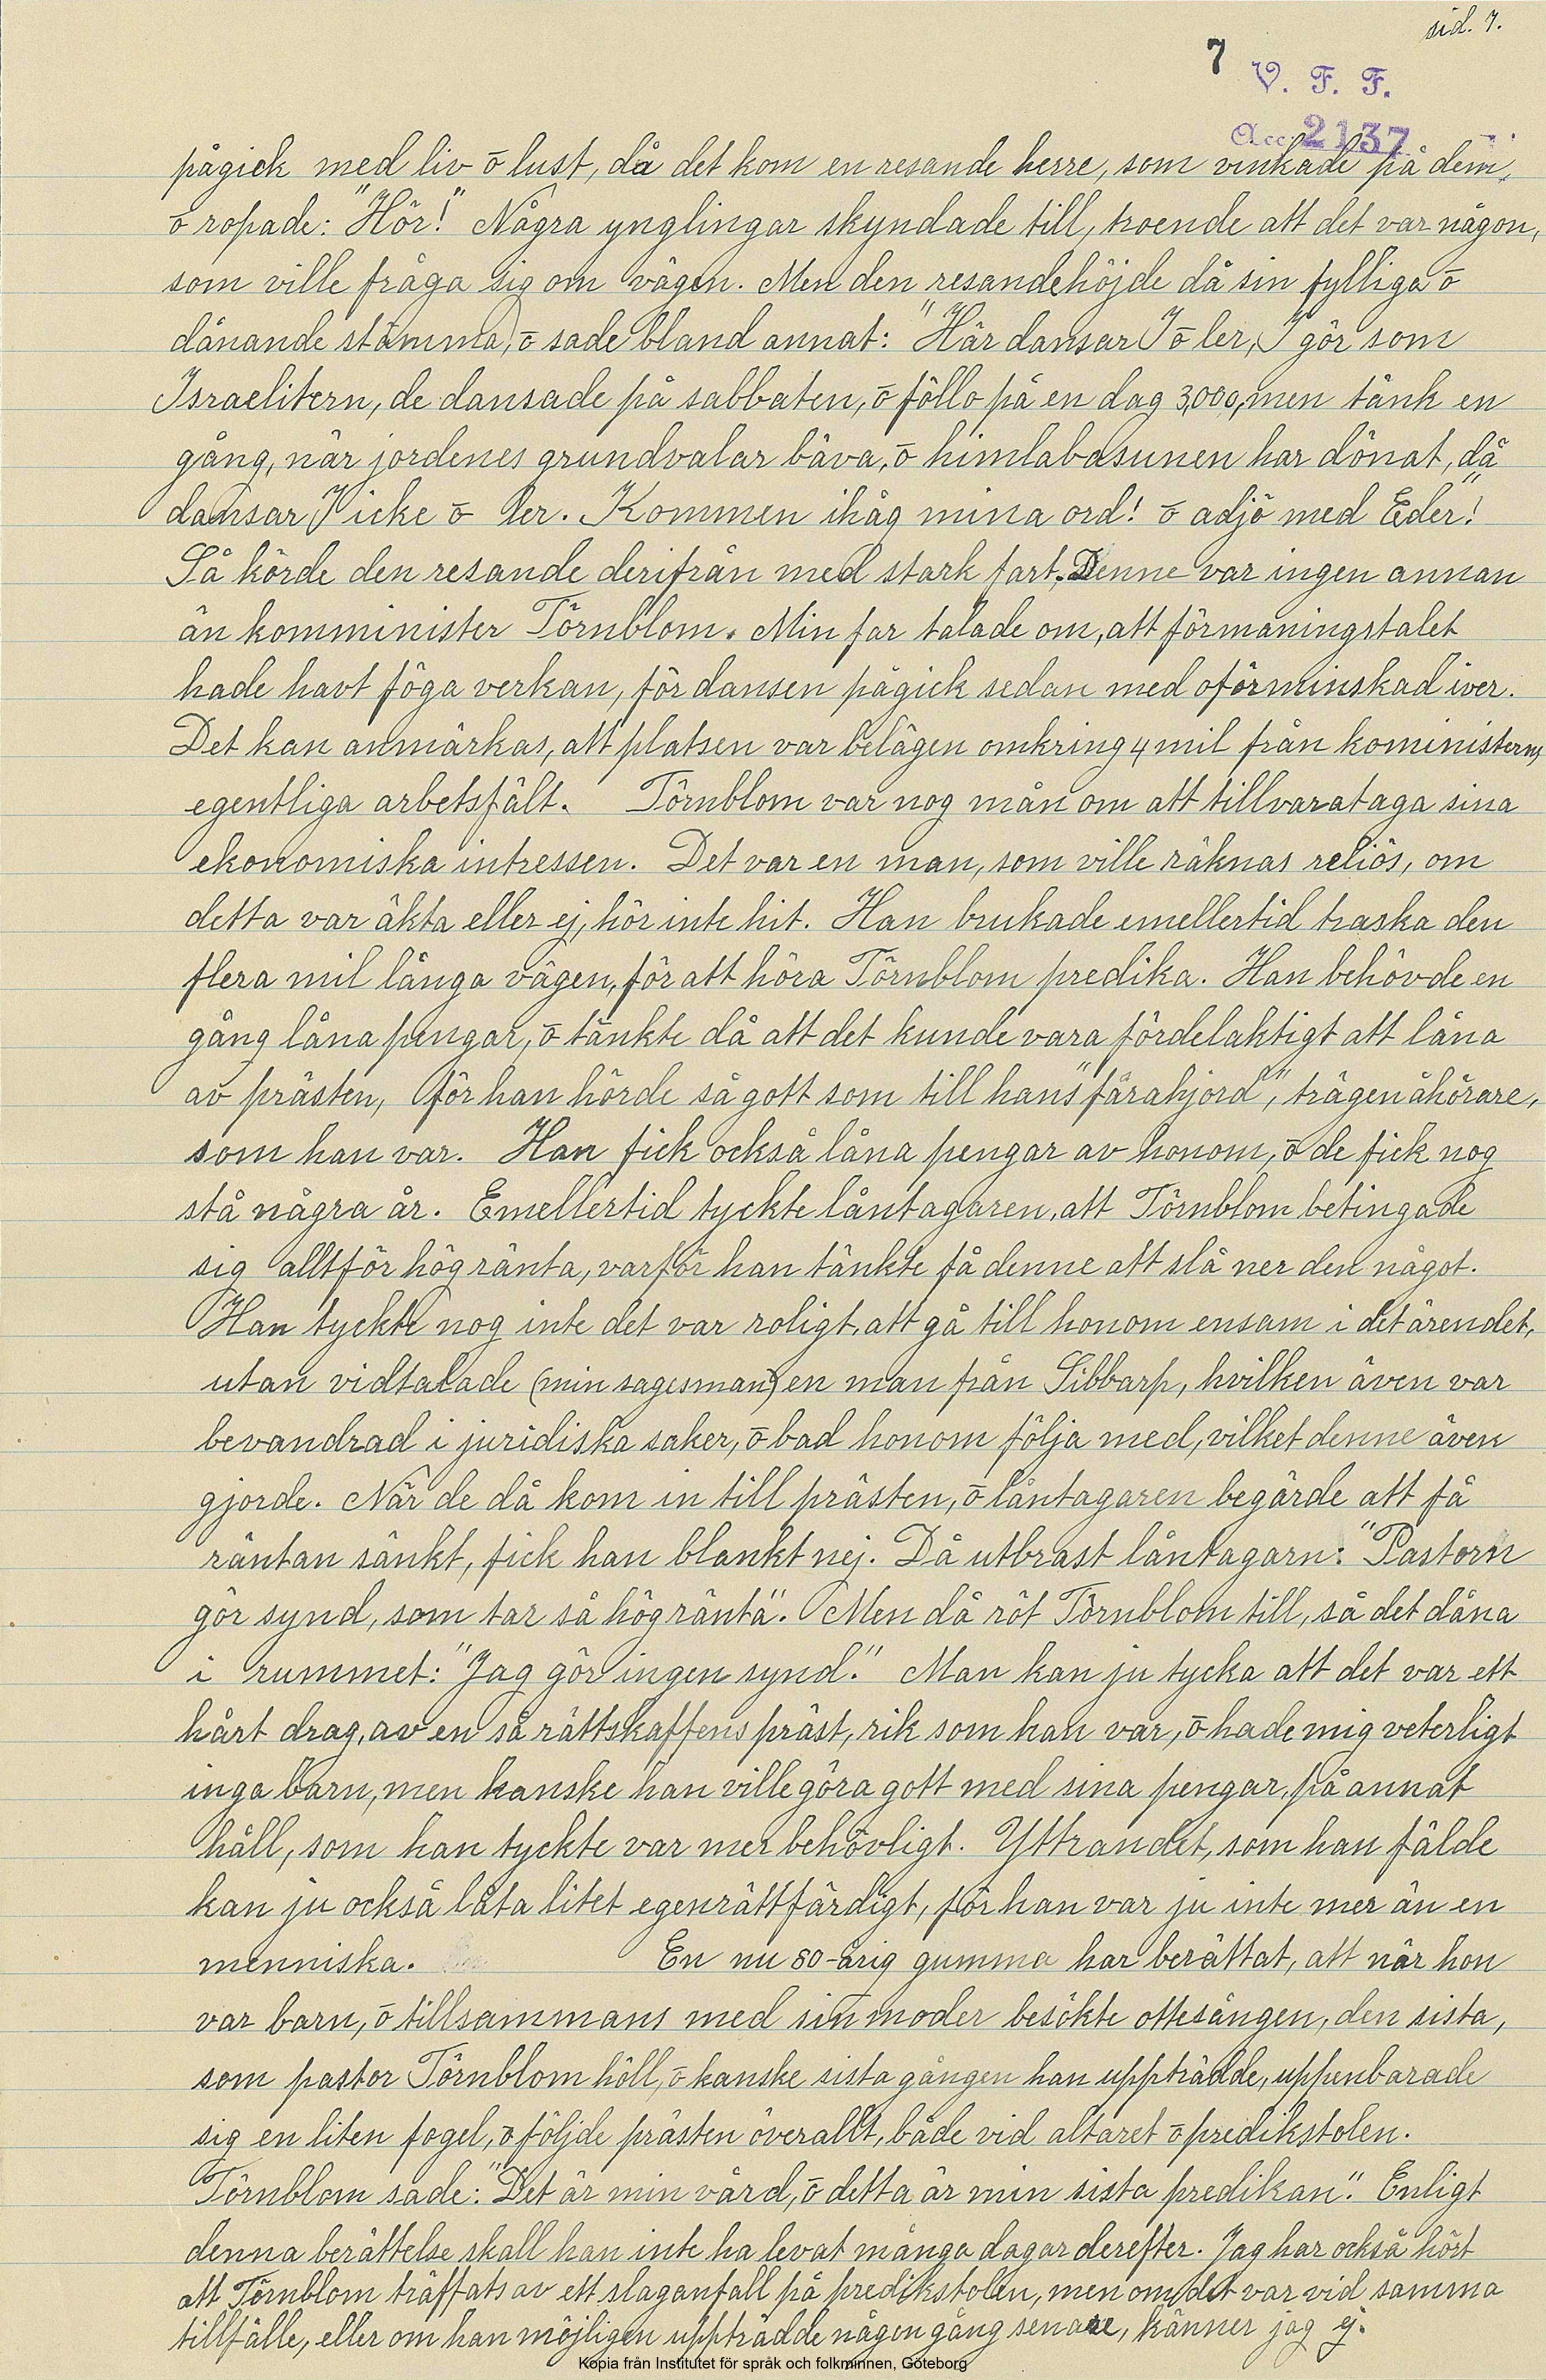 sid. 7.
7
V. F. F.
Acc. 2137
pågick med liv ō lust, då det kom en resande herre, som vinkade på dem,
ō ropade: "Hör!" Några ynglingar skyndade till, troende att det var någon,
som ville fråga sig om vägen. Men den resande höjde då sin fylliga ō
dånande stämma, ō sade bland annat: "Här dansar I ō ler, I gör som
Israelitern, de dansade på sabbaten, ō föllo på en dag 3,000, men tänk en
gång, när jordenes grundvalar bäva, ō himlabasunen har dönat, då
dansar I icke ō ler. Kommen ihåg mina ord! ō adjö med Eder!"
Så körde den resande derifrån med stark fart. Denne var ingen annan
än komminister Törnblom. Min far talade om, att förmaningstalet
hade havt föga verkan, för dansen pågick sedan med oförminskad iver.
Det kan anmärkas, att platsen var belägen omkring 4 mil från koministerns
egentliga arbetsfält. Törnblom var nog mån om att tillvarataga sina
ekonomiska intressen. Det var en man, som ville räknas reliös, om
detta var äkta eller ej, hör inte hit. Han brukade emellertid traska den
flera mil långa vägen, för att höra Törnblom predika. Han behövde en
gång låna pengar, ō tänkte då att det kunde vara fördelaktigt att låna
av prästen, för han hörde så gott som till hans "fårahjord", trägen åhörare,
som han var. Han fick också låna pengar av honom, ō de fick nog
stå några år. Emellertid tyckte låntagaren, att Törnblom betingade
sig alltför hög ränta, varför han tänkte få denne att slå ner den något.
Han tyckte nog inte det var roligt, att gå till honom ensam i det ärendet,
utan vidtalade (min sagesman) en man från Sibbarp, hvilken även var
bevandrad i juridiska saker, ō bad honom följa med, vilket denne även
gjorde. När de då kom in till prästen, ō låntagaren begärde att få
räntan sänkt, fick han blankt nej. Då utbrast låntagarn: "Pastorn
gör synd, som tar så hög ränta". Men då röt Törnblom till, så det dåna
i rummet: "Jag gör ingen synd." Man kan ju tycka att det var ett
hårt drag, av en så rättskaffens präst, rik som han var, ō hade mig veterligt
inga barn, men kanske han ville göra gott med sina pengar, på annat
håll, som han tyckte var mer behövligt. Yttrandet, som han fälde
kan ju också låta litet egenrättfärdigt, för han var ju inte mer än en
menniska. En nu 80-årig gumma har berättat, att när hon
var barn, ō tillsammans med sin moder besökte ottesången, den sista,
som pastor Törnblom höll, ō kanske sista gången han uppträdde, uppenbarade
sig en liten fogel, ō följde prästen överallt, både vid altaret ō predikstolen.
Törnblom sade: "Det är min vård, ō detta är min sista predikan". Enligt
denna berättelse skall han inte ha levat många dagar derefter. Jag har också hört
att Törnblom träffats av ett slaganfall på predikstolen, men om det var vid samma
tillfälle, eller om han möjligen uppträdde någon gång senare, känner jag ej.
Kopia från Institutet för språk och folkminnen, Göteborg